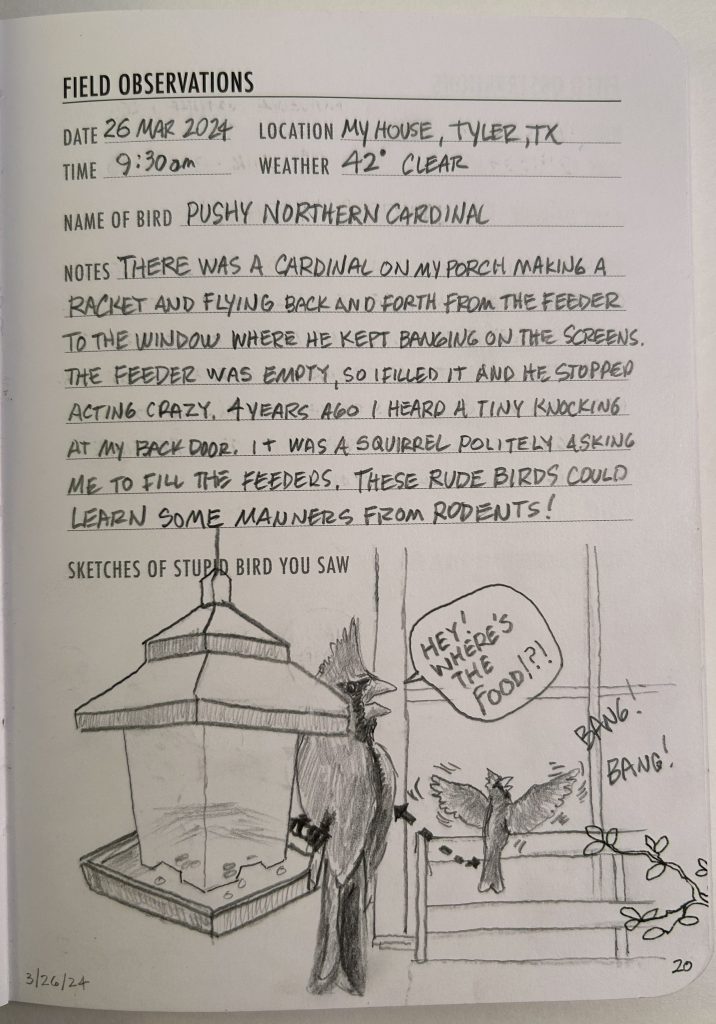 FIELD OBSERVATIONS
DATE 26 MAR 2024 LOCATION MY HOUSE, TYLER, TX
TIME 9:30am WEATHER 42° CLEAR
NAME OF BIRD PUSHY NORTHERN CARDINAL
NOTES THERE WAS A CARDINAL ON MY PORCH MAKING A
RACKET AND FLYING BACK AND FORTH FROM THE FEEDER
TO THE WINDOW WHERE HE KEPT BANGING ON THE SCREENS.
THE FEEDER WAS EMPTY, SO I FILLED IT AND HE STOPPED
ACTING CRAZY. 4 YEARS AGO I HEARD A TINY KNOCKING
AT MY BACK DOOR. IT WAS A SQUIRREL POLITELY ASKING
ME TO FILL THE FEEDERS. THESE RUDE BIRDS COULD
LEARN SOME MANNERS FROM RODENTS!
SKETCHES OF STUPID BIRD YOU SAW
HEY!
WHERE'S
THE
FOOD!?!
BANG!
BANG!
3/26/24
20